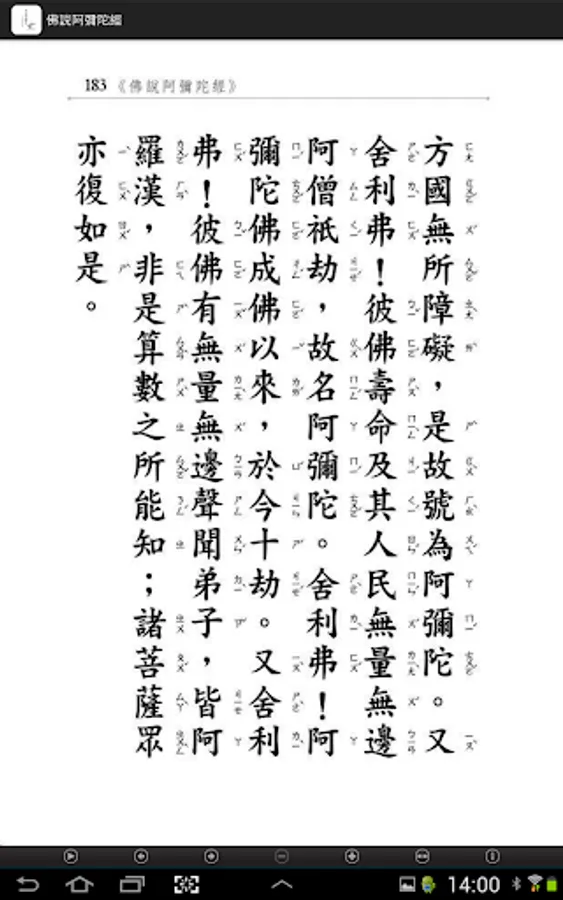 佛說阿彌陀經
183 《佛說阿彌陀經》
方國無所障礙，是故號為阿彌陀。又
舍利弗！彼佛壽命及其人民無量無邊
阿僧祇劫，故名阿彌陀。舍利弗！阿
彌陀佛成佛以來，於今十劫。又舍利
弗！彼佛有無量無邊聲聞弟子，皆阿
羅漢，非是算數之所能知；諸菩薩眾
亦復如是。
14:00